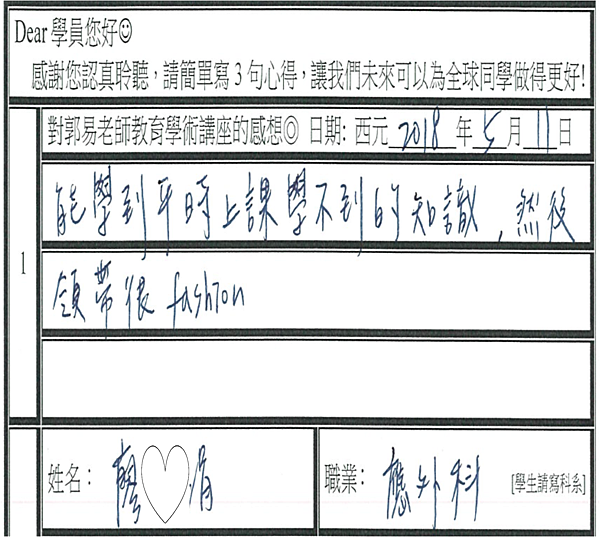 Dear 學員您好☺
感謝您認真聆聽，請簡單寫 3 句心得，讓我們未來可以為全球同學做得更好!
對郭易老師教育學術講座的感想◎ 日期: 西元 2018 年 5 月 11 日
1
能學到平時上課學不到的知識，然後
領帶很 fashion
姓名： 廖♡娟
職業： 應外科 [學生請寫科系]